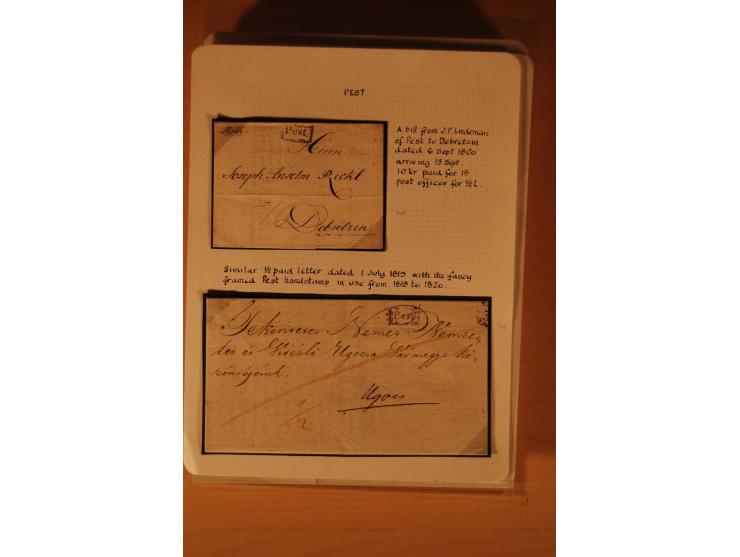 PEST
Pest.
Herrn
Joseph Anselm Rickl
Debretzen
A bill from J.P. Lindeman
of Pest to Debretzin
dated 6 Sept 1820
arriving 13 Sept
10 kr paid for 15
post offices for ½ l.
Similar ½ paid letter dated 1 July 1819 with the fancy
framed Pest handstamp in use from 1818 to 1820.
Pest.
Tekintetes Nemes Nemze-
tes és Vitézlö Ugocsa Vármegye Kö-
zönségének.
Ugocs
1/2